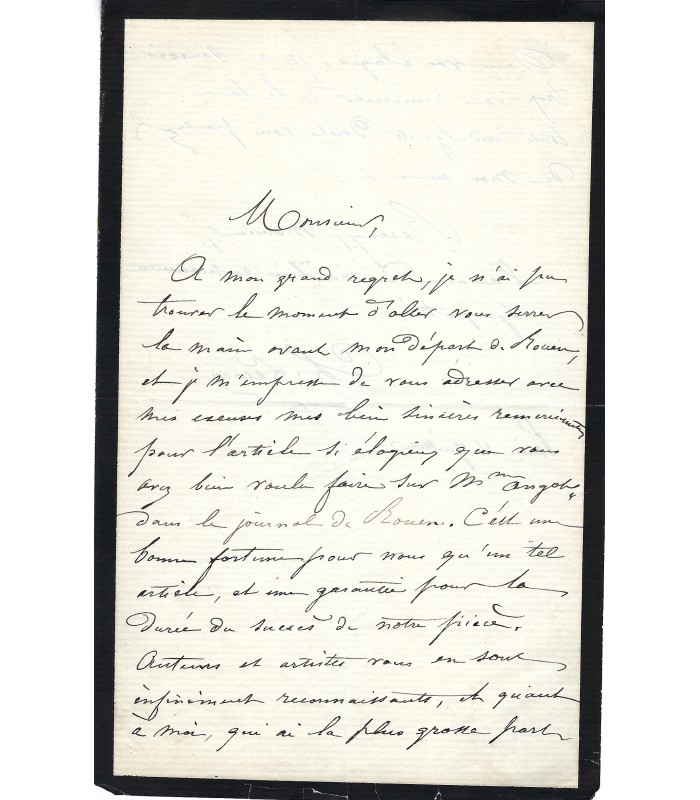 Monsieur,
A mon grand regret, je n'ai pu
trouver le moment d'aller vous serrer
la main avant mon départ de Rouen,
et je m'empresse de vous adresser avec
mes excuses mes bien sincères remerciements
pour l'article si élogieux que vous
avez bien voulu faire sur Mme Angot"
dans le journal de Rouen. C'est une
bonne fortune pour nous qu'un tel
article, et une garantie pour la
durée du succès de notre pièce.
Auteurs et artistes vous en sont
infiniment reconnaissants, et quant
à moi, qui ai la plus grosse part